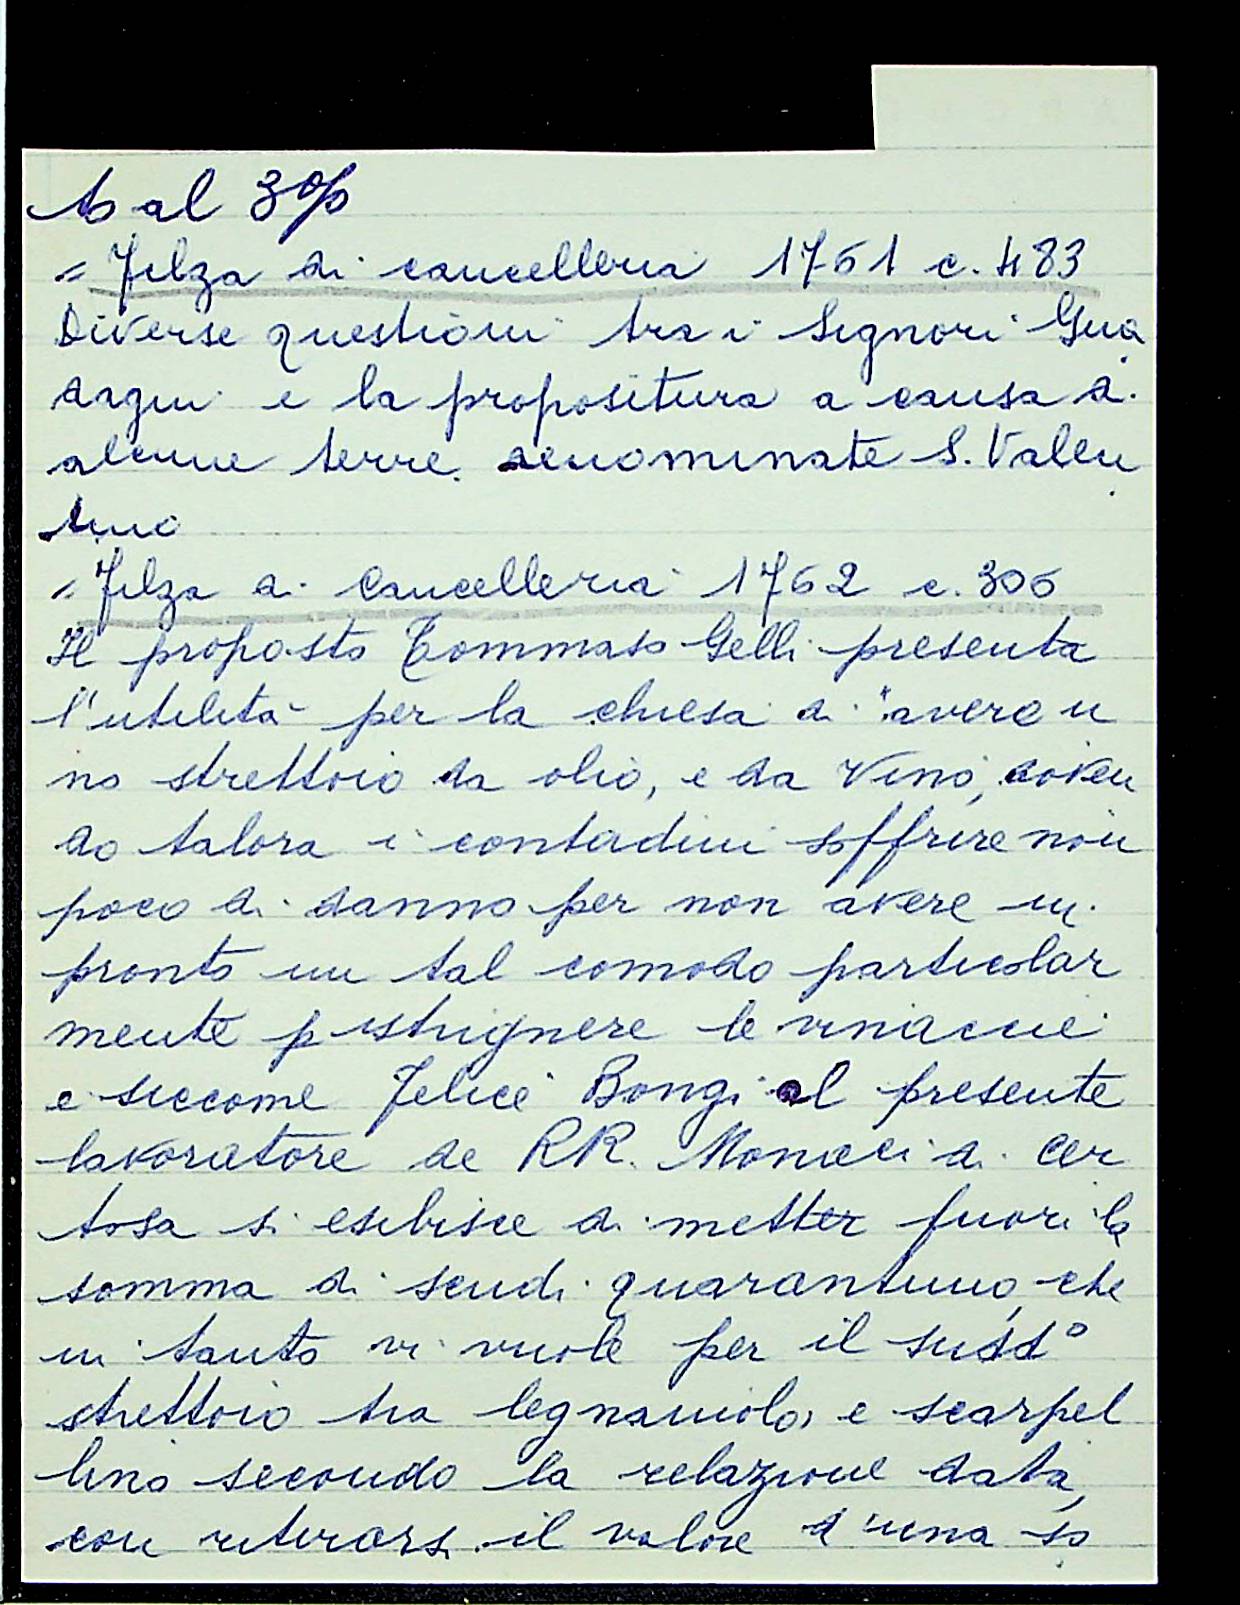 to al 3%
= Filza di cancelleria 1761 c. 483
Diverse questioni tra i Signori Gua
dagni e la propositura a causa di
alcune terre denominate S. Valen
tino
= Filza di Cancelleria 1762 c. 306
Il proposto Tommaso Gelli presenta
l'utilità per la chiesa di "avere u
no strettoio da olio, e da vino, doven
do talora i contadini soffrire non
poco di danno per non avere in
pronto un tal comodo particolar
mente p istrignere le vinaccie
e siccome Felice Bongi al presente
lavoratore de RR. Monaci di Cer
tosa si esibisce di metter fuori la
somma di scudi quarantuno, che
in tanto vi vuole per il sudd°
strettoio tra legnaiolo, e scarpel
lino secondo la relazione data,
con ritirarsi il valore d'una so